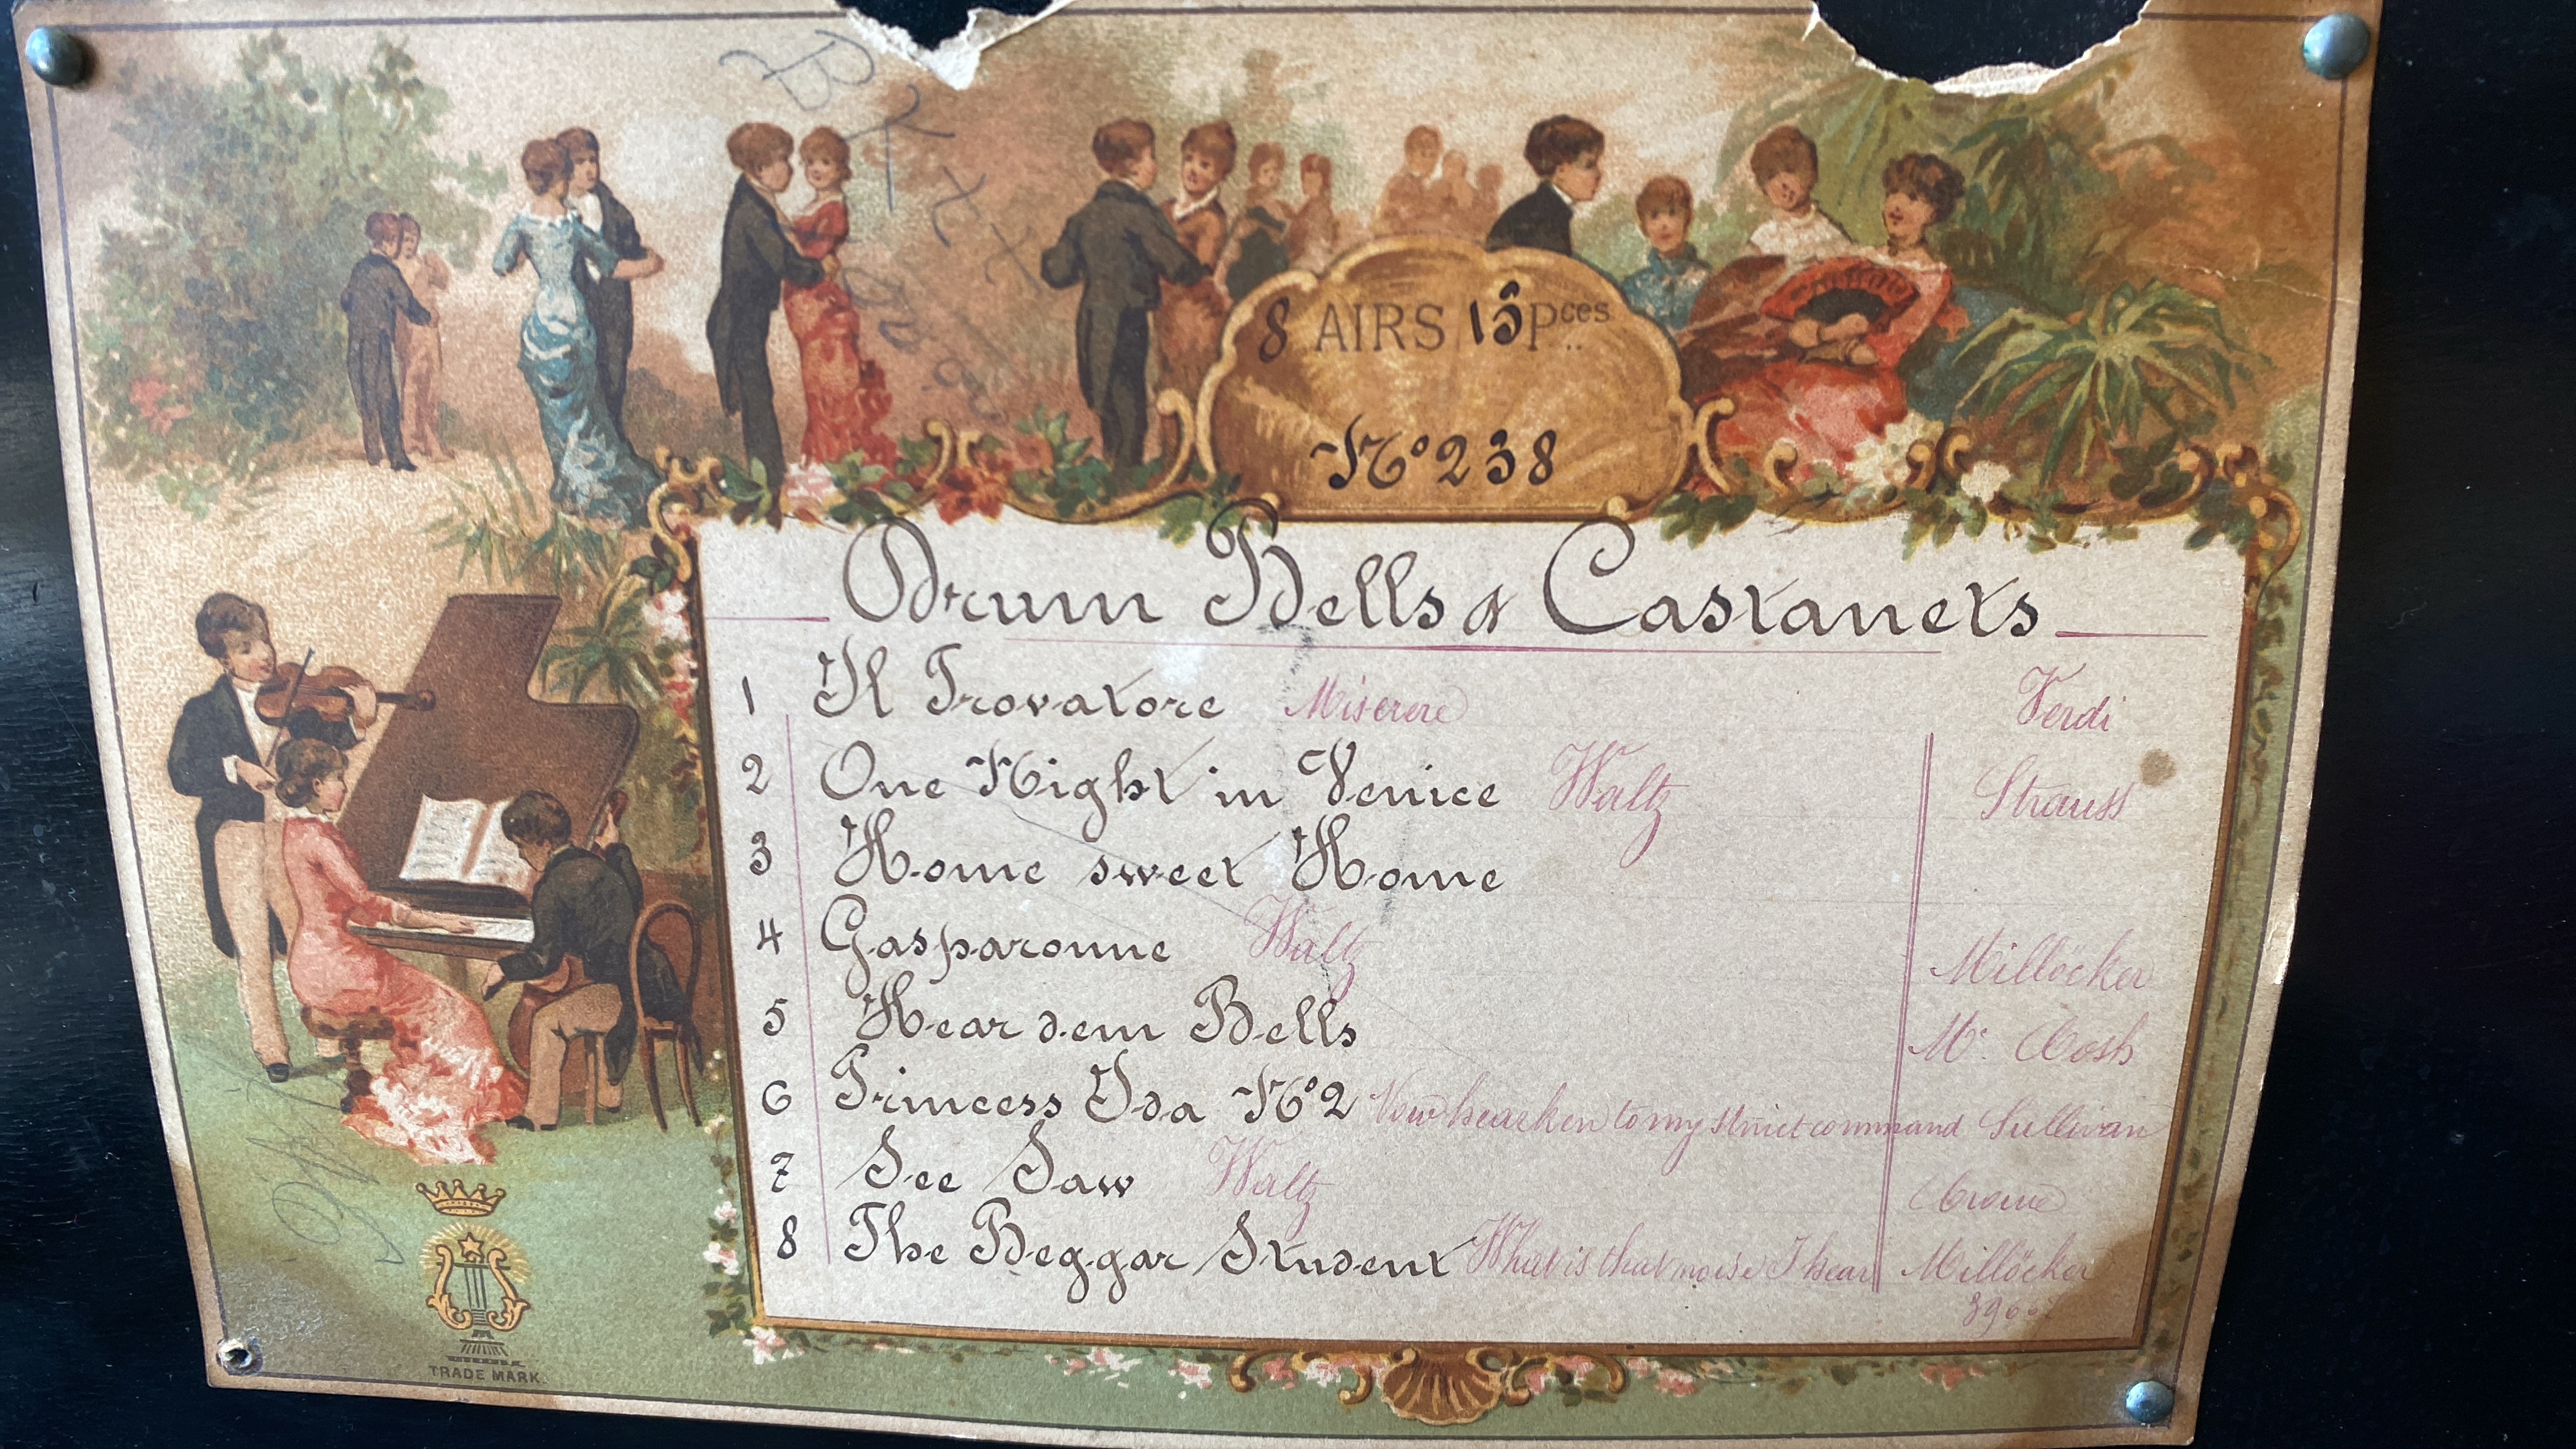 8 AIRS 13 Pces
No 238
Drum Bells & Castanets
1 Il Trovatore Miserere Verdi
2 One Night in Venice Waltz Strauss
3 Home sweet Home
4 Gasparonne Waltz Millöcker
5 Hear dem Bells Mc. Cosh
6 Princess Ida No 2 Now hearken to my strict command Sullivan
7 See Saw Waltz Crowe
8 The Beggar Student What is that noise I hear Millöcker
TRADE MARK.